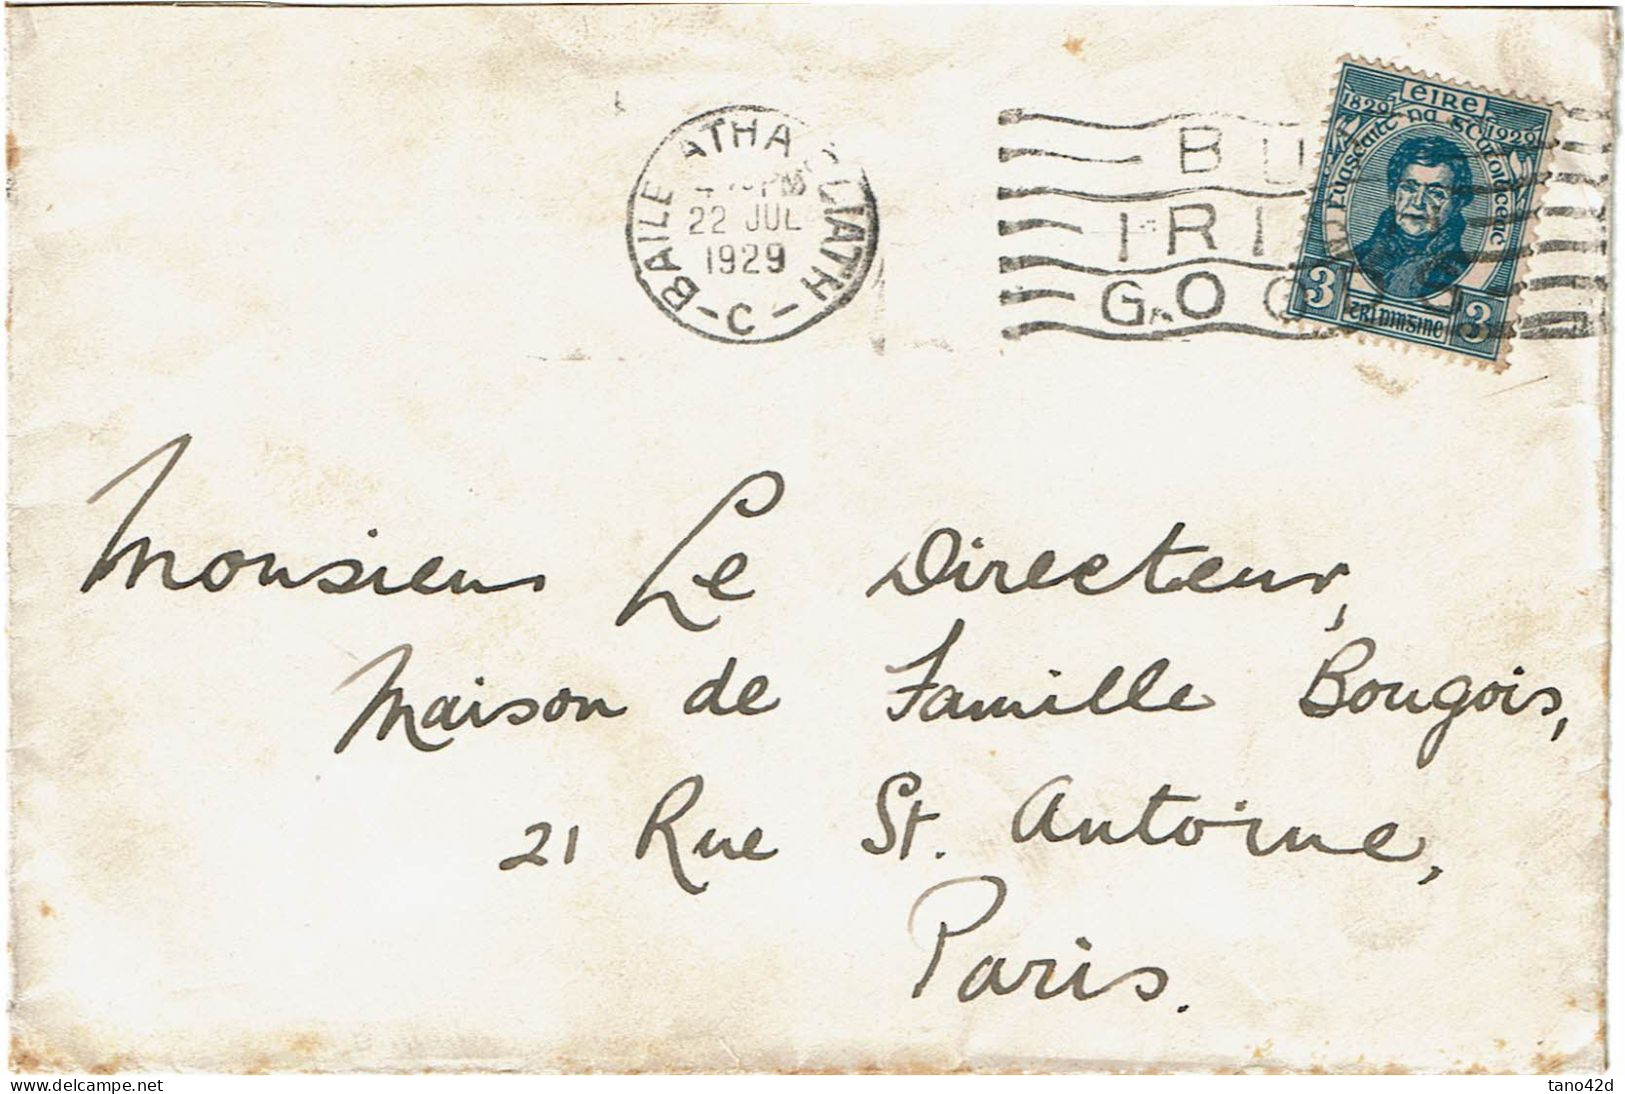 BAILE ATHA CLIATH
PM
22 JUL
1929
-C-
BU
IRI
GOO
1829 éire 1929
Fuascailt na gCaitliceach
3 trí pinsine 3
Monsieur Le Directeur,
Maison de Famille Bougois,
21 Rue St. Antoine,
Paris.
www.delcampe.net
tano42d